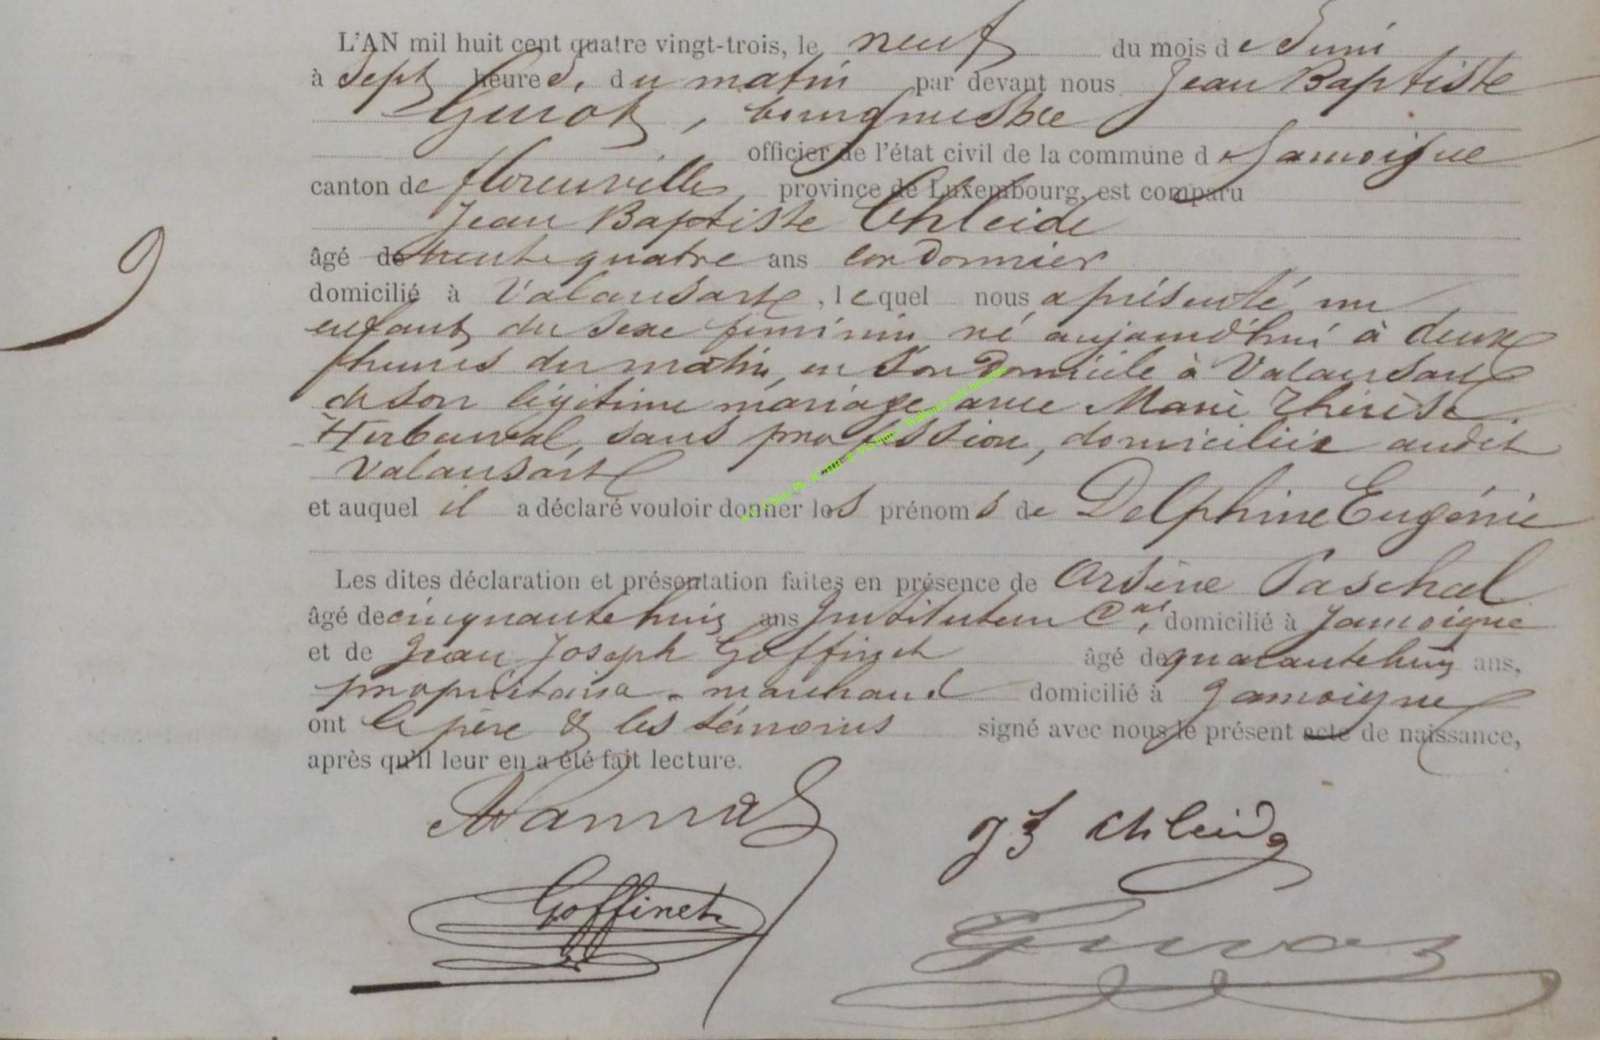 L'AN mil huit cent quatre vingt-trois, le neuf du mois de Juin
à Sept heures, du matin par devant nous Jean Baptiste
Guiot, bourgmestre
officier de l'état civil de la commune de Jamoigne
canton de florenville, province de Luxembourg, est comparu
Jean Baptiste Chleide
âgé de trente quatre ans cordonnier
domicilié à Valansart, lequel nous a présenté un
enfant du sexe féminin né aujourd'hui à deux
heures du matin, en son Domicile à Valansart
de son légitime mariage avec Marie Thérèse
Herbeuval, sans profession, domiciliée audit
Valansart
et auquel il a déclaré vouloir donner les prénoms de Delphine Eugénie
Les dites déclaration et présentation faites en présence de Arsène Paschal
âgé de cinquante huit ans Instituteur Cal, domicilié à Jamoigne
et de Jean Joseph Goffinet âgé de quarante huit ans,
propriétaire - marchand domicilié à Jamoigne
ont le père & les témoins signé avec nous le présent acte de naissance,
après qu'il leur en a été fait lecture.
JB Chleide
Goffinet
Guiot
9